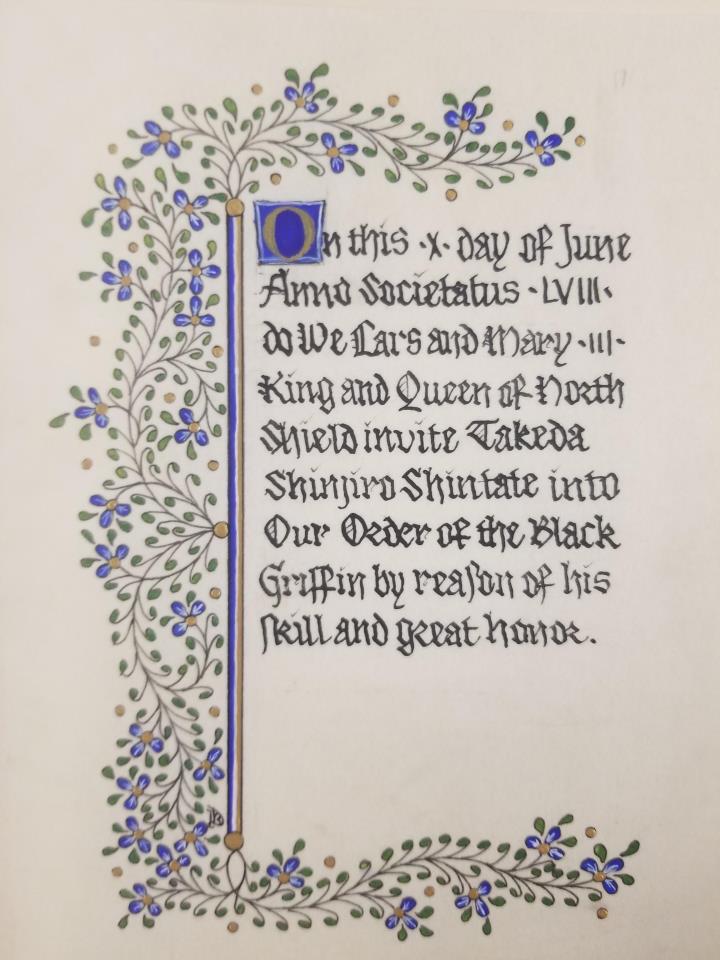 On this ·X· day of June
Anno Societatus ·LVIII·
do We Lars and Mary ·III·
King and Queen of North
Shield invite Takeda
Shinjiro Shintate into
Our Order of the Black
Griffin by reaſon of his
ſkill and great honor.